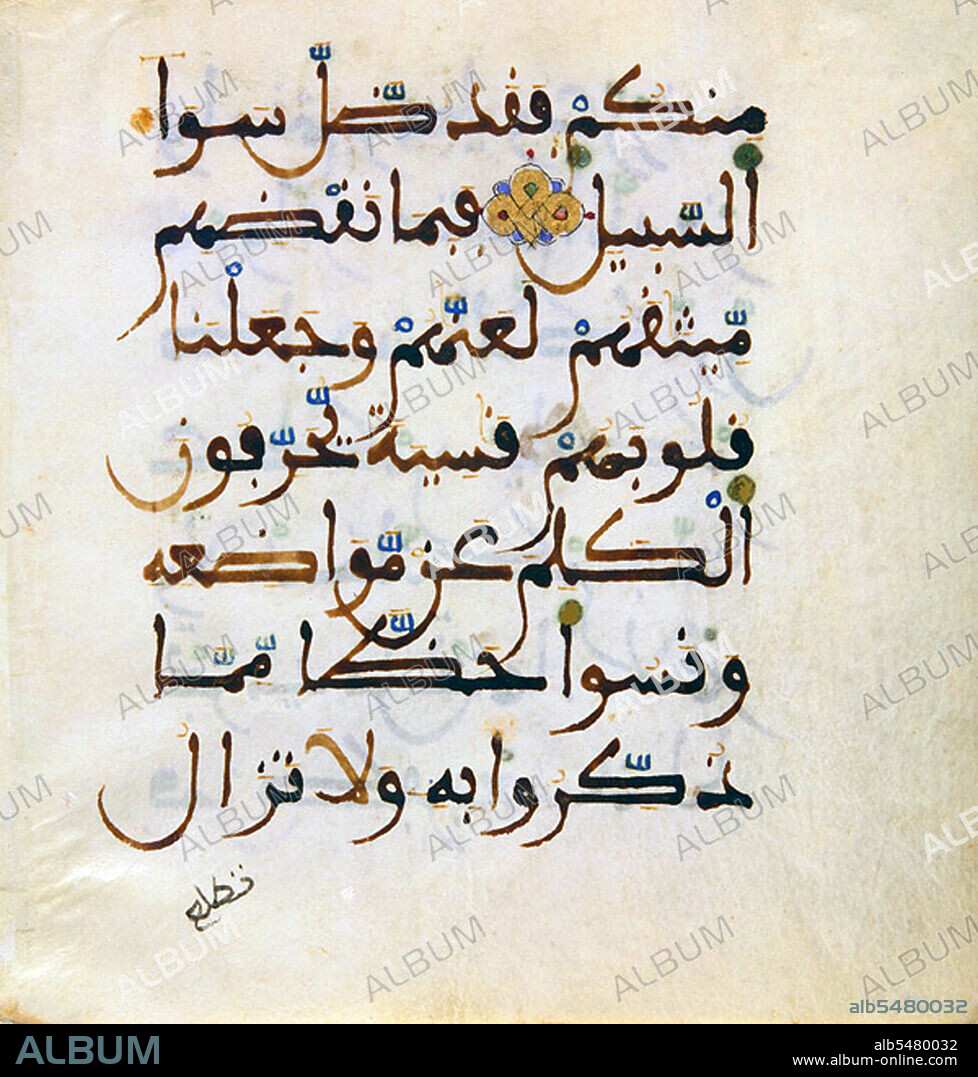 منكم فقد ضلّ سوا
السّبيل فبما نقضهم
مّيثقهم لعنّهم وجعلنا
قلوبهم قسية يحرّفون
الكلم عن مّواضعه
ونسوا حظّا مّمّا
ذكّروا به ولا تزال
تطلع
alb5480032
ALBUM
alb5480032
www.album-online.com